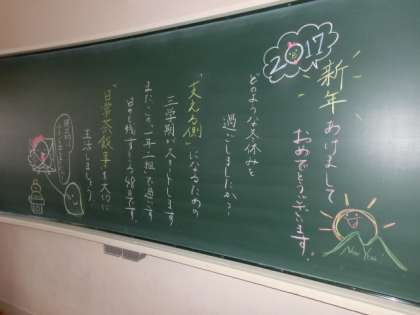 2017
新年あけまして
おめでとうございます。
どのような冬休みを
過ごしましたか?
「支える側」になるための
三学期がスタートします
また、この一年一組で過ごす
日も残すところ48日です。
「日常茶飯事」を大切に
生活しましょう。
New Year!